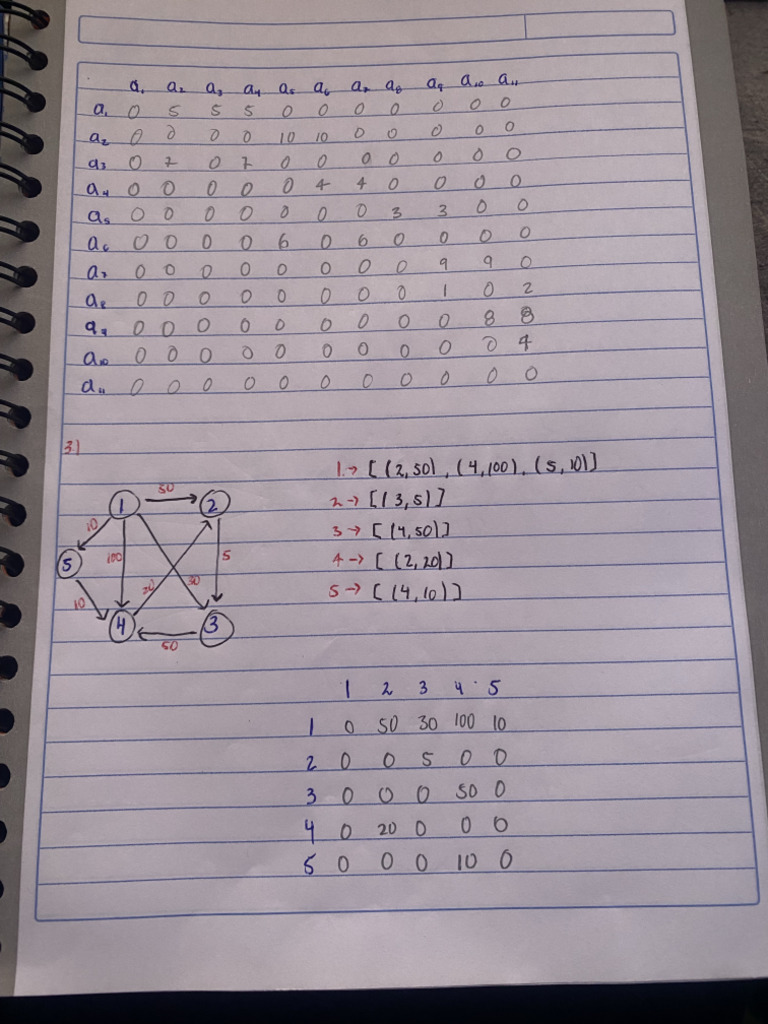 a₁ a₂ a₃ a₄ a₅ a₆ a₇ a₈ a₉ a₁₀ a₁₁
a₁ 0 5 5 5 0 0 0 0 0 0 0
a₂ 0 0 0 0 10 10 0 0 0 0 0
a₃ 0 7 0 7 0 0 0 0 0 0 0
a₄ 0 0 0 0 0 4 4 0 0 0 0
a₅ 0 0 0 0 0 0 0 3 3 0 0
a₆ 0 0 0 0 6 0 6 0 0 0 0
a₇ 0 0 0 0 0 0 0 0 9 9 0
a₈ 0 0 0 0 0 0 0 0 1 0 2
a₉ 0 0 0 0 0 0 0 0 0 8 8
a₁₀ 0 0 0 0 0 0 0 0 0 0 4
a₁₁ 0 0 0 0 0 0 0 0 0 0 0
3)
50
1 2
10
5 100 20 30 5
10
4 3
50
1 → [(2,50), (4,100), (5,10)]
2 → [(3,5)]
3 → [(4,50)]
4 → [(2,20)]
5 → [(4,10)]
1 2 3 4 5
1 0 50 30 100 10
2 0 0 5 0 0
3 0 0 0 50 0
4 0 20 0 0 0
5 0 0 0 10 0